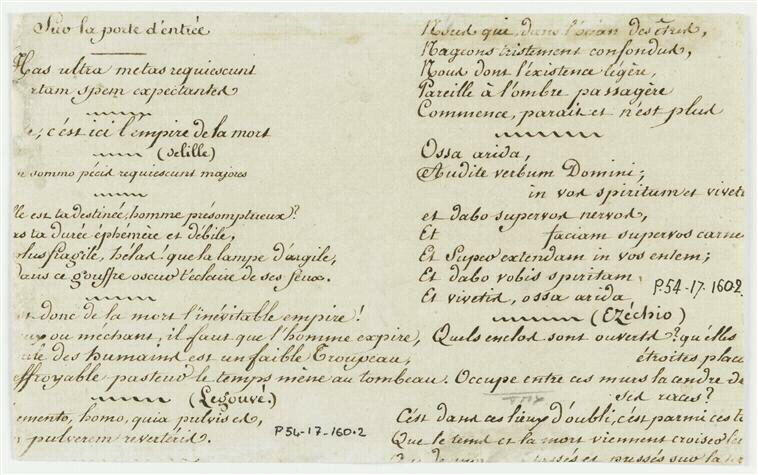 Sur la porte d'entrée
Has ultra metas requiescunt
rtam spem expectantes
c'est ici l'empire de la mort
(delille)
somno pacis requiescunt majores
le est ta destinée, homme présomptueux?
as ta durée éphémère et débile,
plus fragile, hélas! que la lampe d'argile,
dans ce gouffre oscur t'eclaire de ses feux.
donc de la mort l'inévitable empire!
ou méchant, il faut que l'homme expire,
des humains est un faible troupeau,
effroyable pasteur le temps mène au tombeau.
(Legouvé.)
emento, homo, quia pulvis es,
pulverem reverteris.
P54-17-160.2
Nous qui, dans l'océan des êtres,
Nageons tristement confondus,
Nous dont l'existence légère,
Pareille à l'ombre passagère
Commence, parait et n'est plus
Ossa arida,
Audite verbum Domini;
in vos spiritum et vivet
et dabo super vos nervos,
Et faciam super vos carne
Et Super extendam in vos entem;
Et dabo vobis spiritam
Et vivetis, ossa arida
P.54-17-160.2
(Ezéchio)
Quels enclos sont ouverts? qu'elles
étroites place
Occupe entre ces murs la cendre de
ses races?
C'est dans ces lieux d'oubli, c'est parmi ces to
Que le tems et la mort viennent croiser le
pressés sur la